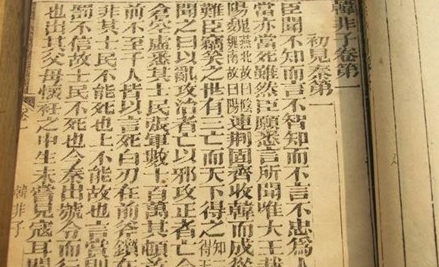 韓非子卷第一
初見秦第一
臣聞不知而言不智知而不言不忠為人
當亦當死雖然臣願悉言所聞唯大王裁
陽魏燕北故曰陰魏南故曰陽連荆固齊收韓而成從
難臣竊笑之世有三亡而天下得之知三得
聞之曰以亂攻治者亡以邪攻正者亡
倉空虛悉其士民張軍數十百萬其頓首
前不至千人皆以言死白刃在前斧鑕在
非其士民不能死也上不能故也言賞則
罰不信故士民不死也今秦出號令而行
也出其父母懷衽之中生未嘗見寇耳聞
卷一
韓非子